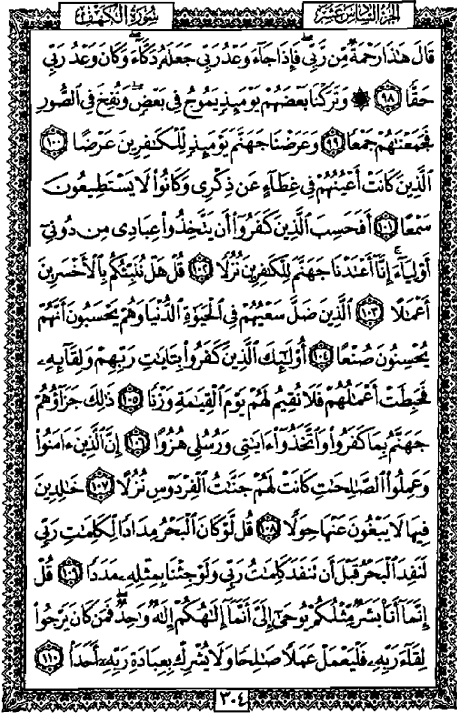 الجزء السادس عشر
سورة الكهف
قَالَ هَٰذَا رَحْمَةٌ مِّن رَّبِّى فَإِذَا جَآءَ وَعْدُ رَبِّى جَعَلَهُۥ دَكَّآءَ وَكَانَ وَعْدُ رَبِّى
حَقًّا ﴿٩٨﴾ ۞ وَتَرَكْنَا بَعْضَهُمْ يَوْمَئِذٍ يَمُوجُ فِى بَعْضٍ وَنُفِخَ فِى الصُّورِ
فَجَمَعْنَٰهُمْ جَمْعًا ﴿٩٩﴾ وَعَرَضْنَا جَهَنَّمَ يَوْمَئِذٍ لِّلْكَٰفِرِينَ عَرْضًا ﴿١٠٠﴾
الَّذِينَ كَانَتْ أَعْيُنُهُمْ فِى غِطَآءٍ عَن ذِكْرِى وَكَانُوا۟ لَا يَسْتَطِيعُونَ
سَمْعًا ﴿١٠١﴾ أَفَحَسِبَ الَّذِينَ كَفَرُوٓا۟ أَن يَتَّخِذُوا۟ عِبَادِى مِن دُونِىٓ
أَوْلِيَآءَ إِنَّآ أَعْتَدْنَا جَهَنَّمَ لِلْكَٰفِرِينَ نُزُلًا ﴿١٠٢﴾ قُلْ هَلْ نُنَبِّئُكُم بِالْأَخْسَرِينَ
أَعْمَٰلًا ﴿١٠٣﴾ الَّذِينَ ضَلَّ سَعْيُهُمْ فِى الْحَيَوٰةِ الدُّنْيَا وَهُمْ يَحْسَبُونَ أَنَّهُمْ
يُحْسِنُونَ صُنْعًا ﴿١٠٤﴾ أُو۟لَٰٓئِكَ الَّذِينَ كَفَرُوا۟ بِـَٔايَٰتِ رَبِّهِمْ وَلِقَآئِهِۦ
فَحَبِطَتْ أَعْمَٰلُهُمْ فَلَا نُقِيمُ لَهُمْ يَوْمَ الْقِيَٰمَةِ وَزْنًا ﴿١٠٥﴾ ذَٰلِكَ جَزَآؤُهُمْ
جَهَنَّمُ بِمَا كَفَرُوا۟ وَاتَّخَذُوٓا۟ ءَايَٰتِى وَرُسُلِى هُزُوًا ﴿١٠٦﴾ إِنَّ الَّذِينَ ءَامَنُوا۟
وَعَمِلُوا۟ الصَّٰلِحَٰتِ كَانَتْ لَهُمْ جَنَّٰتُ الْفِرْدَوْسِ نُزُلًا ﴿١٠٧﴾ خَٰلِدِينَ
فِيهَا لَا يَبْغُونَ عَنْهَا حِوَلًا ﴿١٠٨﴾ قُل لَّوْ كَانَ الْبَحْرُ مِدَادًا لِّكَلِمَٰتِ رَبِّى
لَنَفِدَ الْبَحْرُ قَبْلَ أَن تَنفَدَ كَلِمَٰتُ رَبِّى وَلَوْ جِئْنَا بِمِثْلِهِۦ مَدَدًا ﴿١٠٩﴾ قُلْ
إِنَّمَآ أَنَا۠ بَشَرٌ مِّثْلُكُمْ يُوحَىٰٓ إِلَىَّ أَنَّمَآ إِلَٰهُكُمْ إِلَٰهٌ وَٰحِدٌ فَمَن كَانَ يَرْجُوا۟
لِقَآءَ رَبِّهِۦ فَلْيَعْمَلْ عَمَلًا صَٰلِحًا وَلَا يُشْرِكْ بِعِبَادَةِ رَبِّهِۦٓ أَحَدًۢا ﴿١١٠﴾
٣٠٤